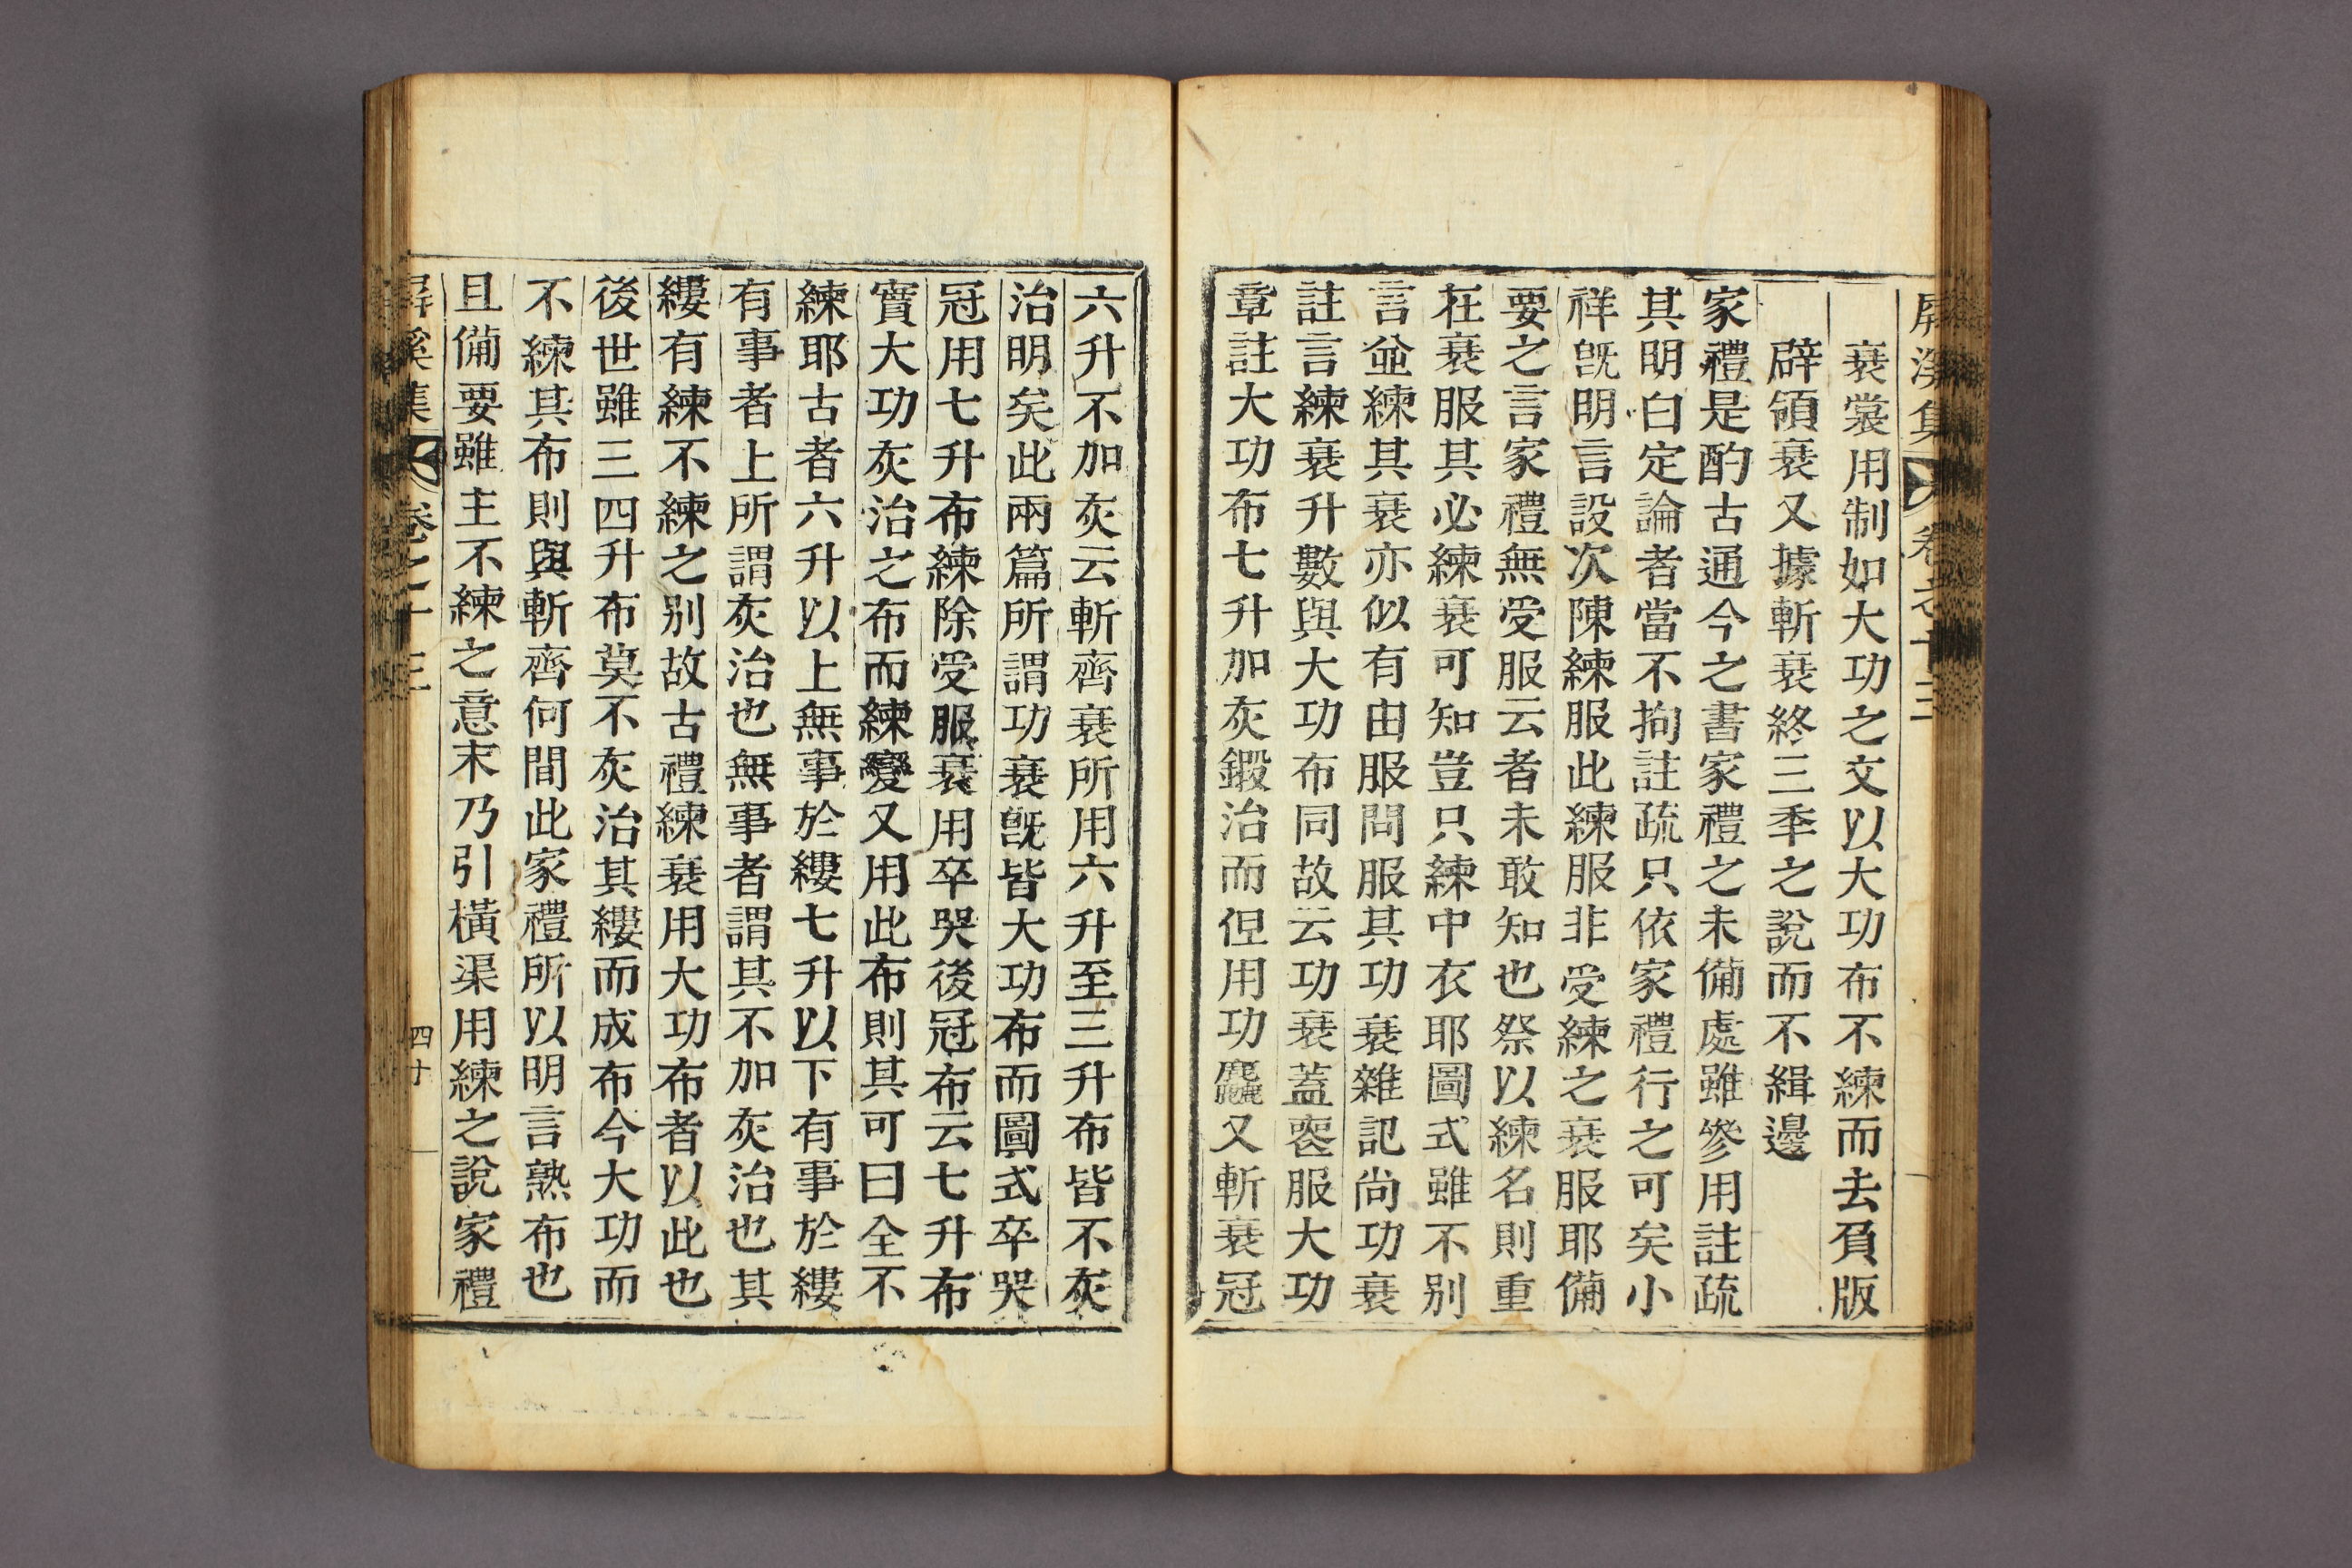 屏溪集 卷之十三
衰裳用制如大功之文以大功布不練而去負版
辟領衰又據斬衰終三季之說而不緝邊
家禮是酌古通今之書家禮之未備處雖參用註疏
其明白定論者當不拘註疏只依家禮行之可矣小
祥旣明言設次陳練服此練服非受練之衰服耶備
要之言家禮無受服云者未敢知也祭以練名則重
在衰服其必練衰可知豈只練中衣耶圖式雖不別
言並練其衰亦似有由服問服其功衰雜記尙功衰
註言練衰升數與大功布同故云功衰蓋喪服大功
章註大功布七升加灰鍛治而但用功麤又斬衰冠
六升不加灰云斬齊衰所用六升至三升布皆不灰
治明矣此兩篇所謂功衰旣皆大功布而圖式卒哭
冠用七升布練除受服衰用卒哭後冠布云七升布
實大功灰治之布而練變又用此布則其可曰全不
練耶古者六升以上無事於縷七升以下有事於縷
有事者上所謂灰治也無事者謂其不加灰治也其
縷有練不練之別故古禮練衰用大功布者以此也
後世雖三四升布莫不灰治其縷而成布今大功而
不練其布則與斬齊何間此家禮所以明言熟布也
且備要雖主不練之意末乃引橫渠用練之說家禮
屏溪集 卷之十三 四十